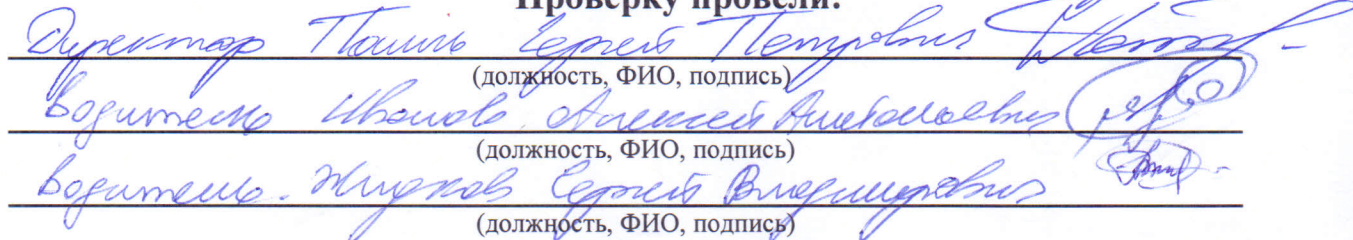 Проверку провели:
Директор Сергей Петрович
(должность, ФИО, подпись)
Водитель Иванов Алексей Анатольевич
(должность, ФИО, подпись)
Водитель. Жидков Сергей Владимирович
(должность, ФИО, подпись)